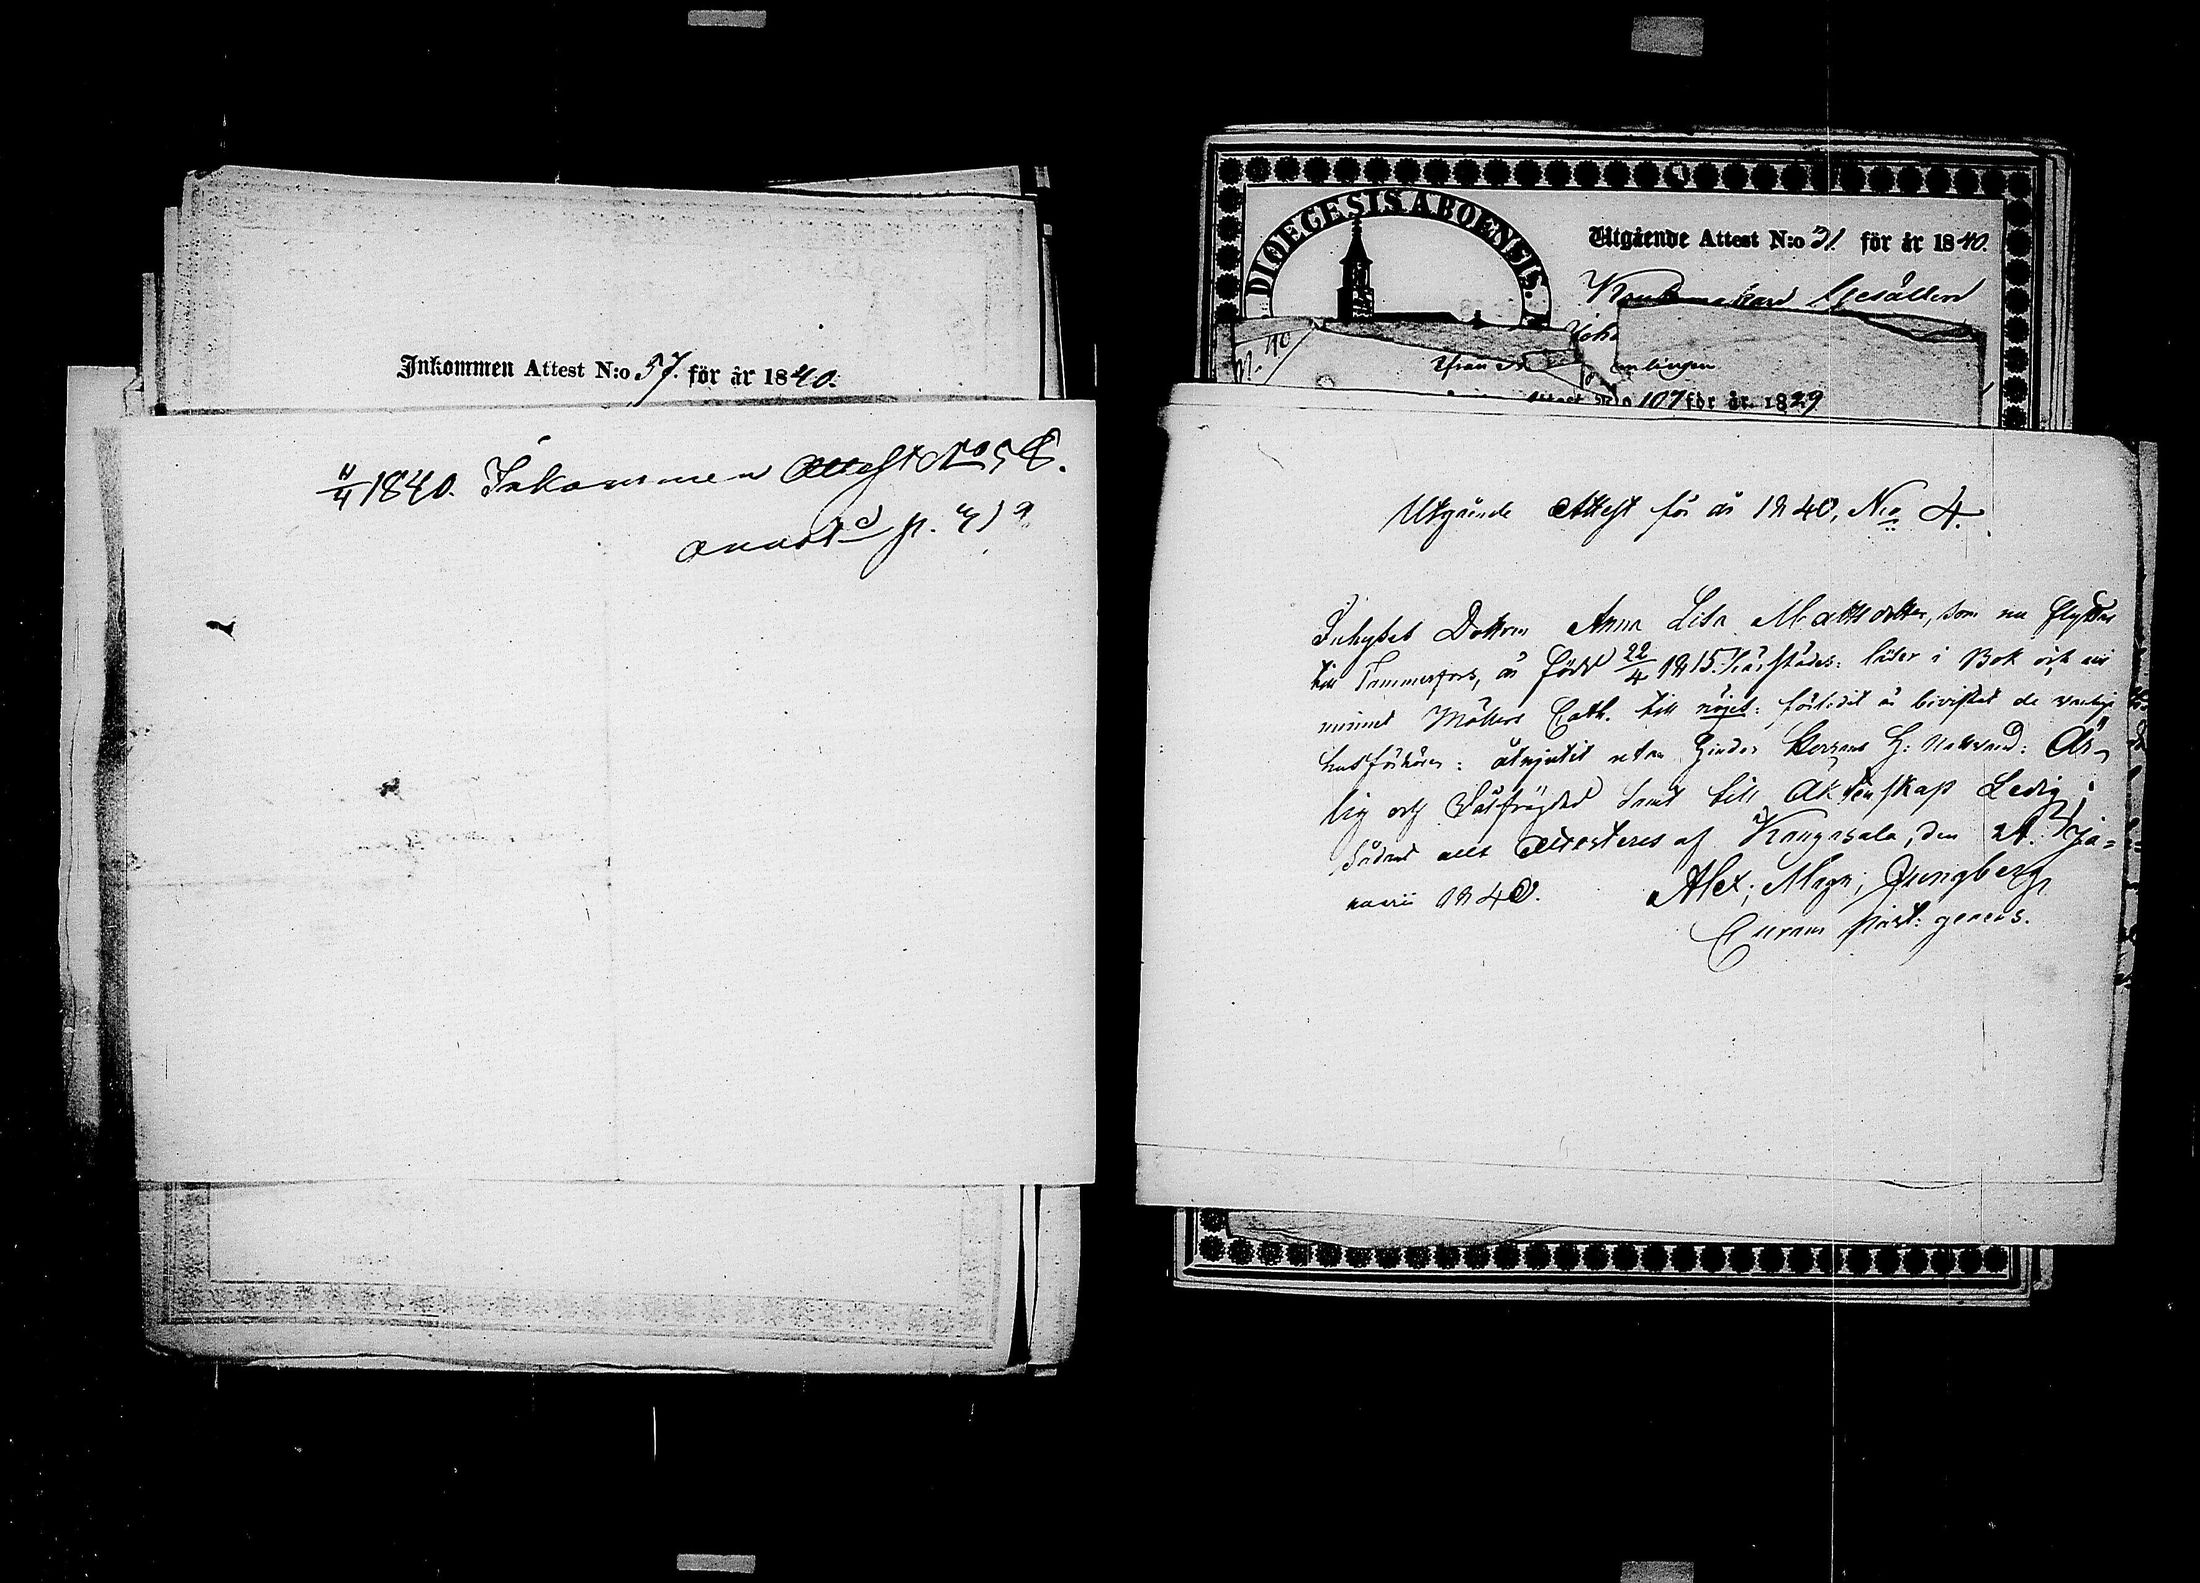 Inkommen Attest N:o 57. för år 1840.
4/4 1840. Inkommen Attest No 58.
annot^d p. 419
DIOEGESIS ABOENSIS.
Utgående Attest N:o 31. för år 1840.
Gesällen
Joh
N. 40
ifrån
Attest N:o 107 för år 1829
Utgående Attest för år 1840, N:o 4.
Inhyses Dottren Anna Lisa Mattsdotter, som nu flyttar
till Tammerfors, är född 22/4 1815. härstädes: läser i Bok och
minnet Möllers Cath. till nöjes: förstådt o bevistat de vanliga
husförhören: åtnjutit utan hinder Herrans H: Nattvard: Är-
lig och Välfrägdad samt till Äktenskap Ledig;
Sådant allt attesteras af Kangasala, den 21. Ja=
nuarii 1840.
Alex; Magn; Ljungberg
Curam past: gerens.